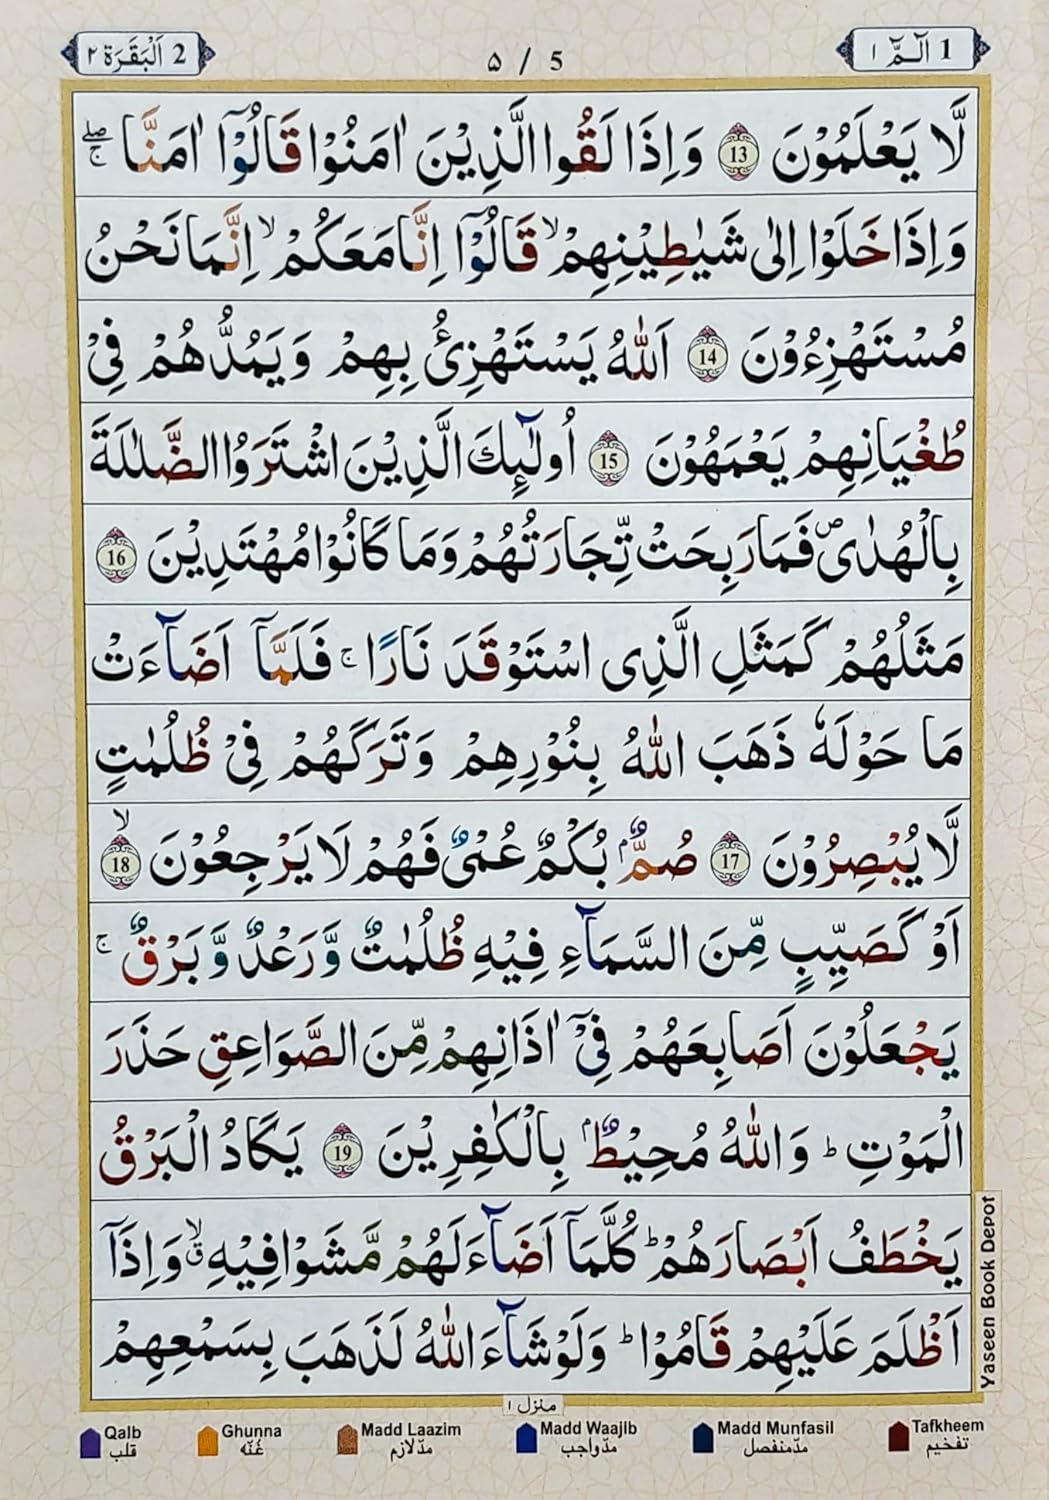 1 الٓمّٓ ۱
5 / ۵
2 اَلْبَقَرَة ۲
لَّا يَعْلَمُوْنَ 13 وَاِذَا لَقُوا الَّذِيْنَ اٰمَنُوْا قَالُوْٓا اٰمَنَّا ۚۖ
وَاِذَا خَلَوْا اِلٰى شَيٰطِيْنِهِمْ ۙ قَالُوْٓا اِنَّا مَعَكُمْ ۙ اِنَّمَا نَحْنُ
مُسْتَهْزِءُوْنَ 14 اَللّٰهُ يَسْتَهْزِئُ بِهِمْ وَيَمُدُّهُمْ فِيْ
طُغْيَانِهِمْ يَعْمَهُوْنَ 15 اُولٰٓئِكَ الَّذِيْنَ اشْتَرَوُا الضَّلٰلَةَ
بِالْهُدٰى ۪ فَمَا رَبِحَتْ تِّجَارَتُهُمْ وَمَا كَانُوْا مُهْتَدِيْنَ 16
مَثَلُهُمْ كَمَثَلِ الَّذِى اسْتَوْقَدَ نَارًا ۚ فَلَمَّآ اَضَآءَتْ
مَا حَوْلَهٗ ذَهَبَ اللّٰهُ بِنُوْرِهِمْ وَتَرَكَهُمْ فِيْ ظُلُمٰتٍ
لَّا يُبْصِرُوْنَ 17 صُمٌّۢ بُكْمٌ عُمْيٌ فَهُمْ لَا يَرْجِعُوْنَ 18 ۙ
اَوْ كَصَيِّبٍ مِّنَ السَّمَآءِ فِيْهِ ظُلُمٰتٌ وَّرَعْدٌ وَّبَرْقٌ ۚ
يَجْعَلُوْنَ اَصَابِعَهُمْ فِيْٓ اٰذَانِهِمْ مِّنَ الصَّوَاعِقِ حَذَرَ
الْمَوْتِ ؕ وَاللّٰهُ مُحِيْطٌۢ بِالْكٰفِرِيْنَ 19 يَكَادُ الْبَرْقُ
يَخْطَفُ اَبْصَارَهُمْ ؕ كُلَّمَآ اَضَآءَ لَهُمْ مَّشَوْا فِيْهِ ۙق وَاِذَآ
اَظْلَمَ عَلَيْهِمْ قَامُوْا ؕ وَلَوْ شَآءَ اللّٰهُ لَذَهَبَ بِسَمْعِهِمْ
Yaseen Book Depot
منزل ۱
Qalb Ghunna Madd Laazim Madd Waajib Madd Munfasil Tafkheem
قلب غُنّه مدّلازم مدّواجب مدّمنفصل تفخیم